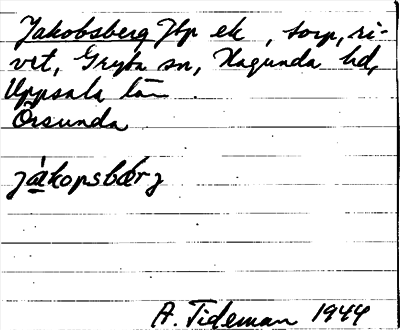 Jakobsberg Jlp ek, torp, ri-
vet, Gryta sn, Hagunda hd,
Uppsala län
Örsunda
jákopsbærj
A. Tideman 1944